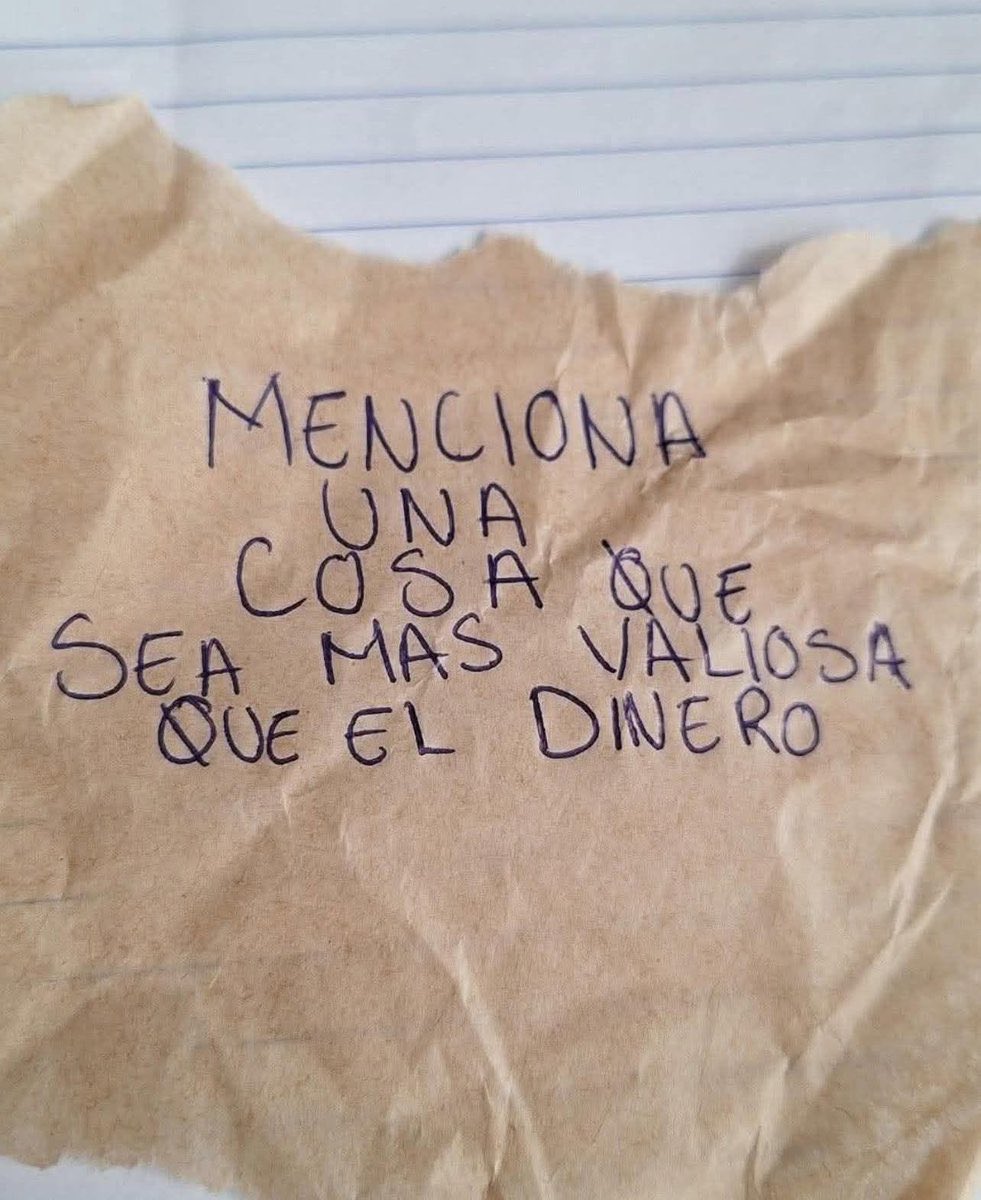 MENCIONA
UNA
COSA QUE
SEA MAS VALIOSA
QUE EL DINERO